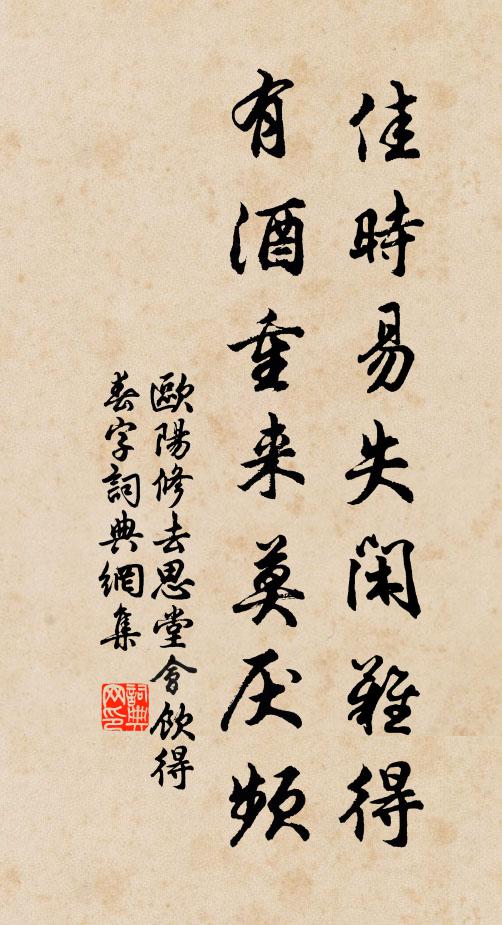 佳時易失閑難得
有酒重来莫厌頻
歐陽修去思堂會飲得
春字詞典網集
詞典
网印